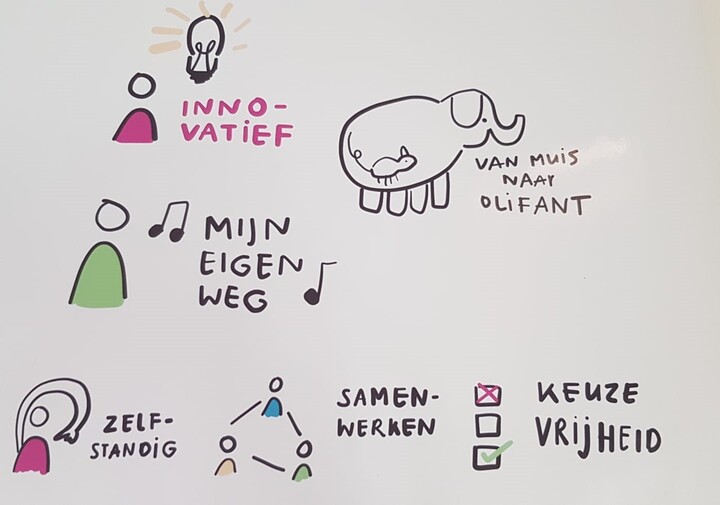 INNO-
VATiEF
VAN MUiS
NAAR
OLiFANT
MIJN
EIGEN
WEG
ZELF-
STANDiG
SAMEN-
WERKEN
KEUZE
VRIJHEID